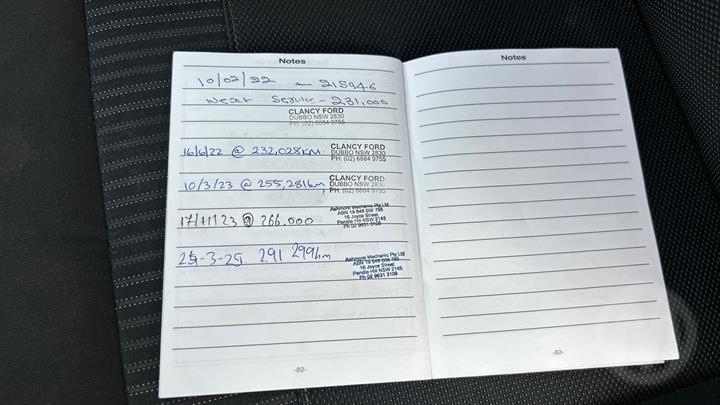 Notes
10/02/22 - 215946
Next Service - 231,000
CLANCY FORD
DUBBO NSW 2830
PH: (02) 6884 9755
16/6/22 @ 232,028KM
CLANCY FORD
DUBBO NSW 2830
PH: (02) 6884 9755
10/3/23 @ 255,281km
CLANCY FORD
DUBBO NSW 2830
PH: (02) 6884 9755
17/11/23 @ 266,000
Ashmore Mechanic Pty Ltd
ABN 19 648 006 795
16 Joyce Street
Pendle Hill NSW 2145
Ph 02 9631 3109
25-3-25 291 299km
Ashmore Mechanic Pty Ltd
ABN 19 648 006 795
16 Joyce Street
Pendle Hill NSW 2145
Ph 02 9631 3109
-82-
Notes
-83-